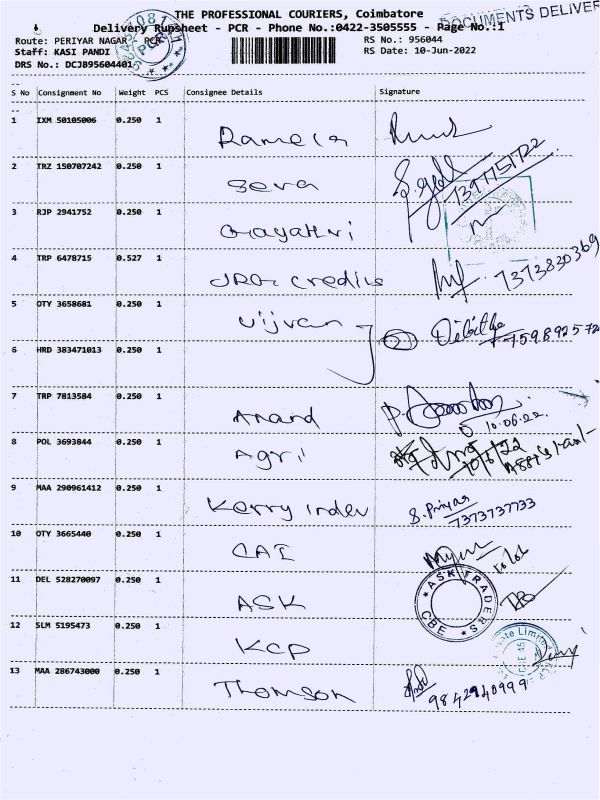 THE PROFESSIONAL COURIERS, Coimbatore
DOCUMENTS DELIVER
Delivery Runsheet - PCR - Phone No.:0422-3505555 - Page No.:1
Route: PERIYAR NAGAR - PCR
RS No.: 956044
Staff: KASI PANDI
RS Date: 10-Jun-2022
DRS No.: DCJB95604401
S No Consignment No Weight PCS Consignee Details Signature
1 IXM 50105006 0.250 1 Ramela
2 TRZ 150707242 0.250 1 Seva
3 RJP 2941752 0.250 1 Gayathri
4 TRP 6478715 0.527 1 JRG credius 7373830369
5 OTY 3658681 0.250 1 Vijvan
6 HRD 383471013 0.250 1
7 TRP 7813584 0.250 1 Anand 10.06.22
8 POL 3693844 0.250 1 Agri 10/6/22
9 MAA 290961412 0.250 1 Kerry indev S. Priya 7373737733
10 OTY 3665440 0.250 1 CAI
11 DEL 528270097 0.250 1 ASK
ASK TRADERS CBE
12 SLM 5195473 0.250 1 KCP
13 MAA 286743000 0.250 1 Thomson 9842940999